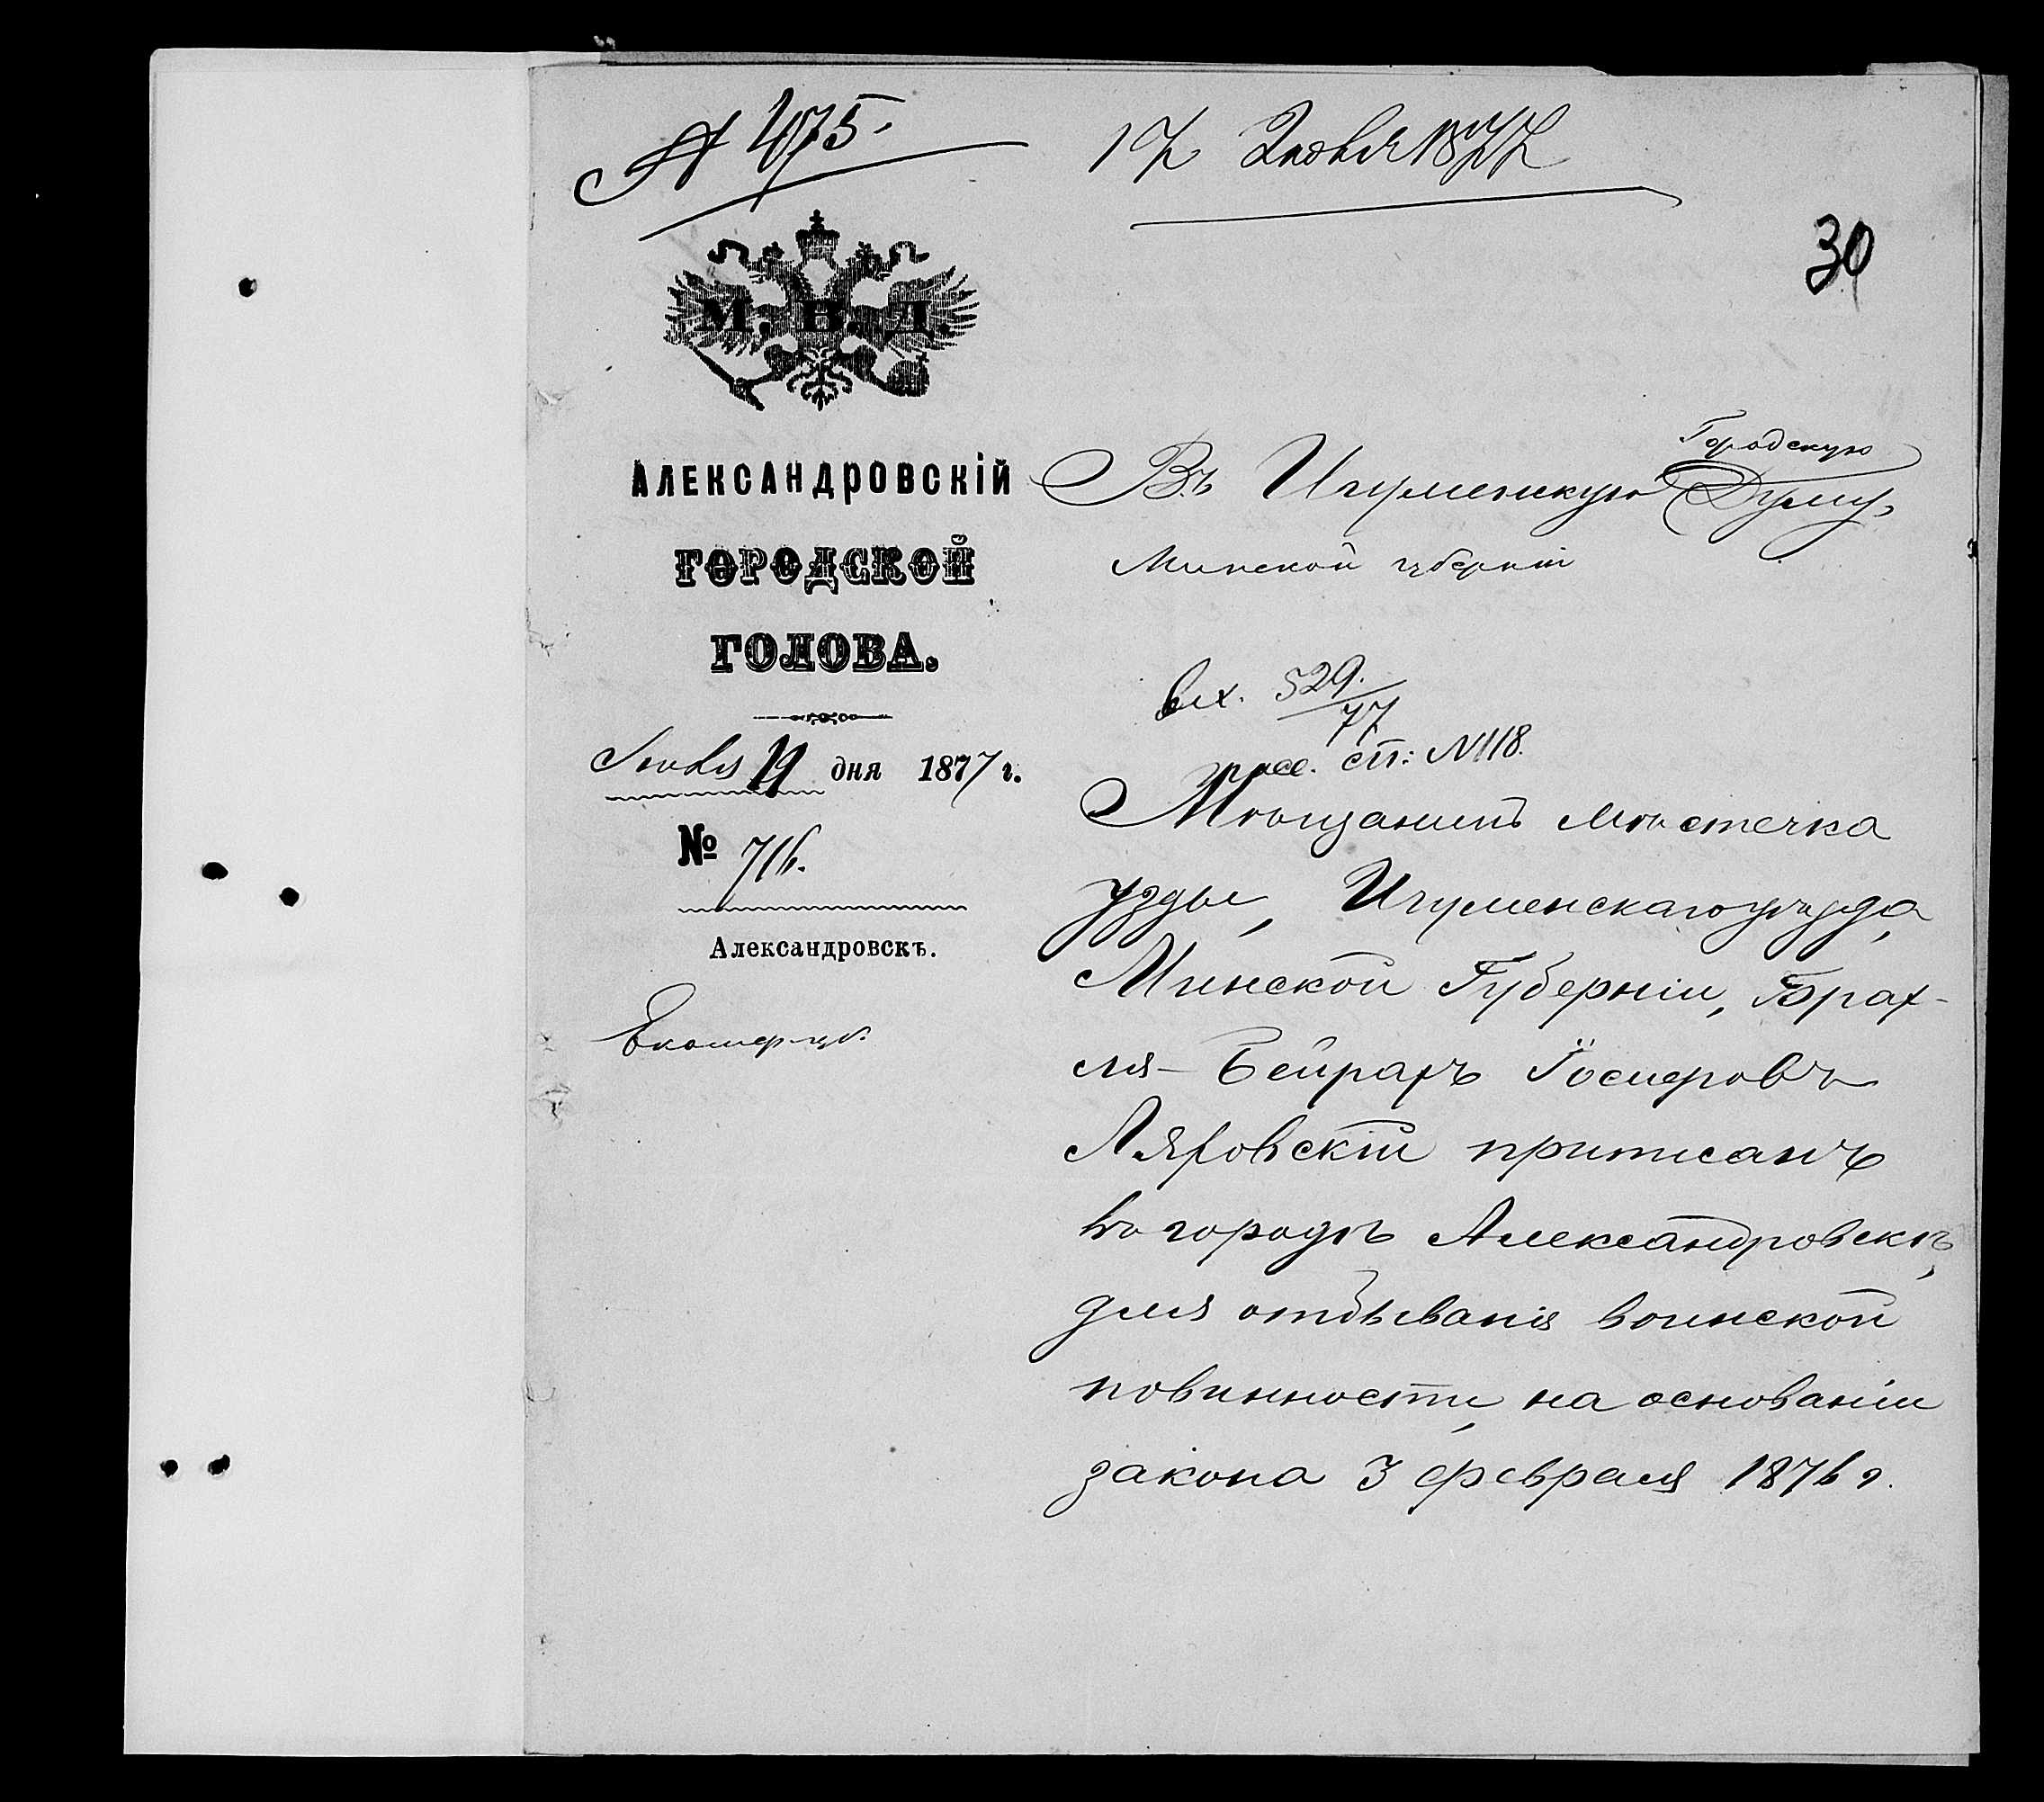 № 475.
17 Июня 1877
30
М. В. Д.
АЛЕКСАНДРОВСКІЙ
ГОРОДСКОЙ
ГОЛОВА.
19 дня 1877 г.
№ 716.
Александровскъ.
Городскую
Въ Игуменскую Думу,
Минской губерніи
вх. 529/77
ст: N 118.
Мѣщанинъ мѣстечка
Узды, Игуменскаго уѣзда,
Минской Губерніи, Брах-
ля-Бейрахъ Іосперовъ
Ляховскій приписанъ
въ городѣ Александровскѣ,
для отбыванія воинской
повинности, на основаніи
закона 3 февраля 1876 г.